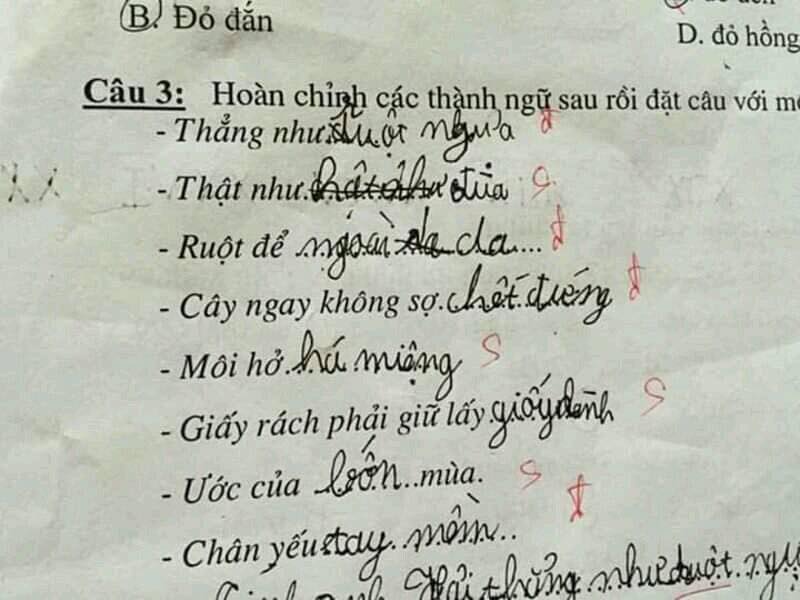 B. Đỏ đắn
D. đỏ hồng
Câu 3: Hoàn chỉnh các thành ngữ sau rồi đặt câu với
- Thẳng như ruột ngựa đ
- Thật như đùa s
- Ruột để ngoài da... đ
- Cây ngay không sợ chết đướng đ
- Môi hở há miệng s
- Giấy rách phải giữ lấy giấy dành s
- Ước của bốn mùa. s
- Chân yếu tay mềm.. đ
Hải thẳng như ruột